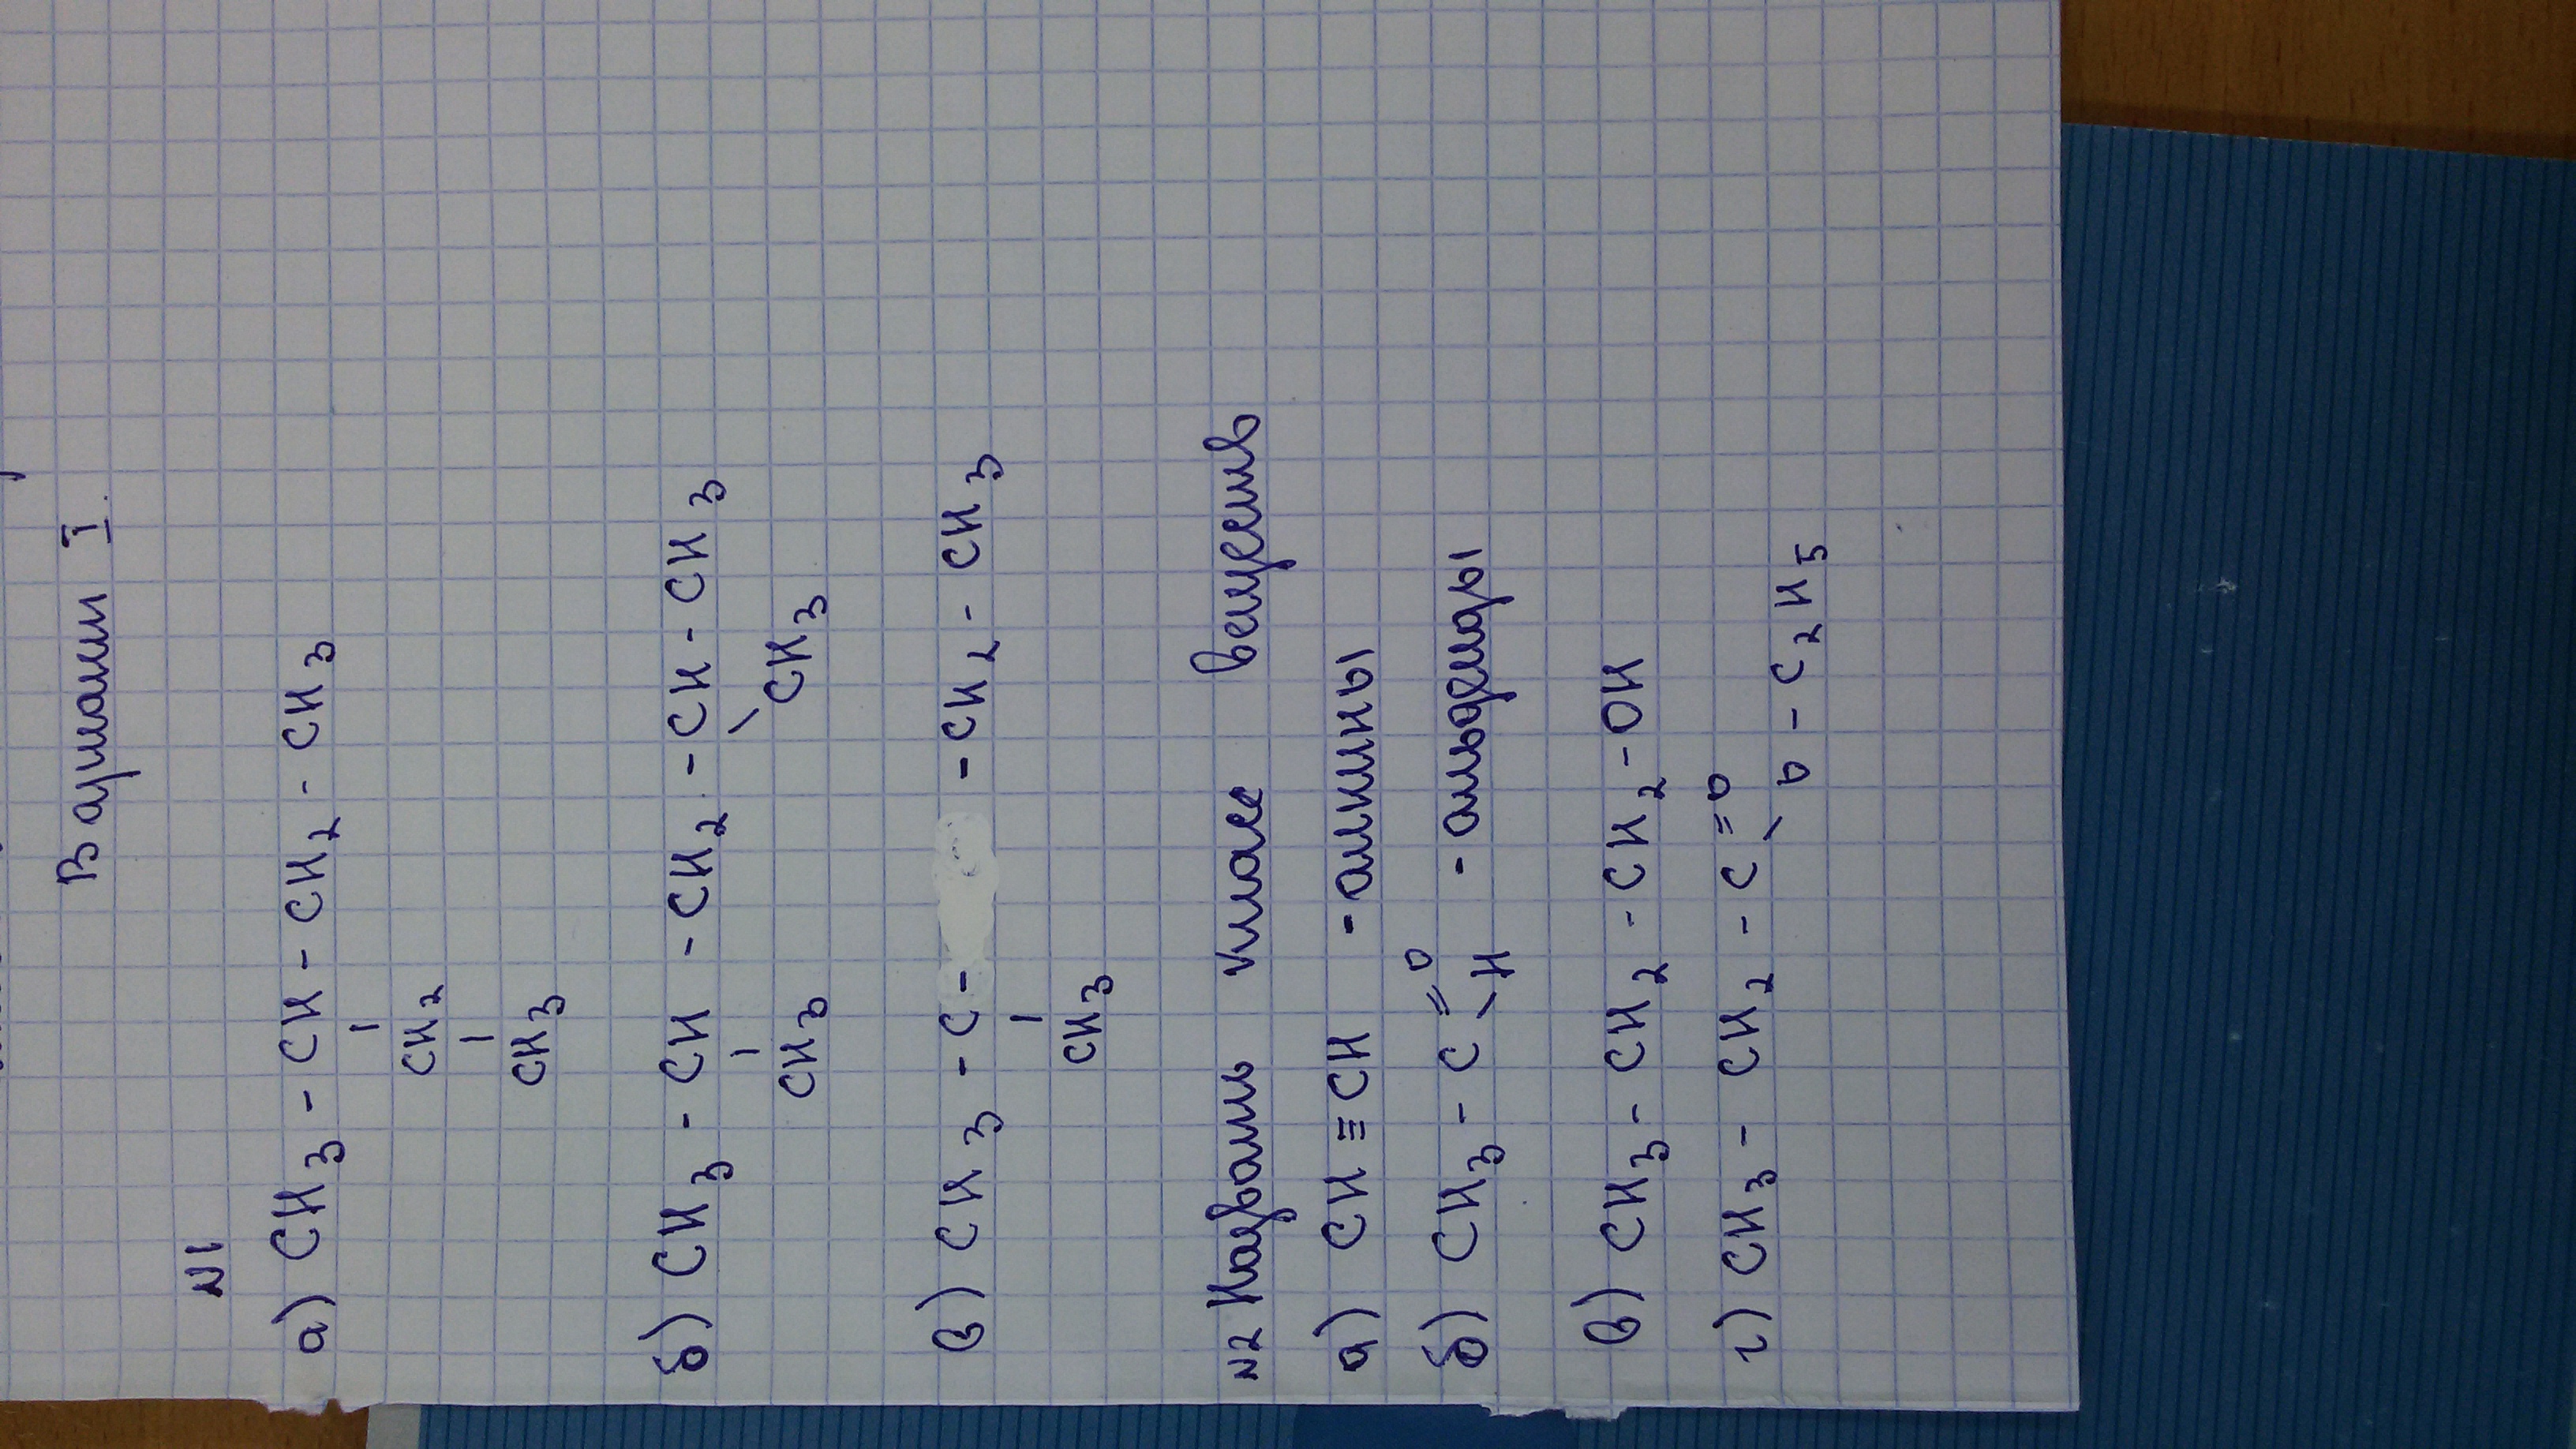 Вариант I.
N1
а) CH3 - CH - CH2 - CH3
CH2
CH3
б) CH3 - CH - CH2 - CH - CH3
CH3 CH3
в) CH3 - C - - CH2 - CH3
CH3
N2 Назвать класс веществ
а) CH ≡ CH - алкины
б) CH3 - C = O - альдегиды
H
в) CH3 - CH2 - CH2 - OH
г) CH3 - CH2 - C = O
O - C2H5